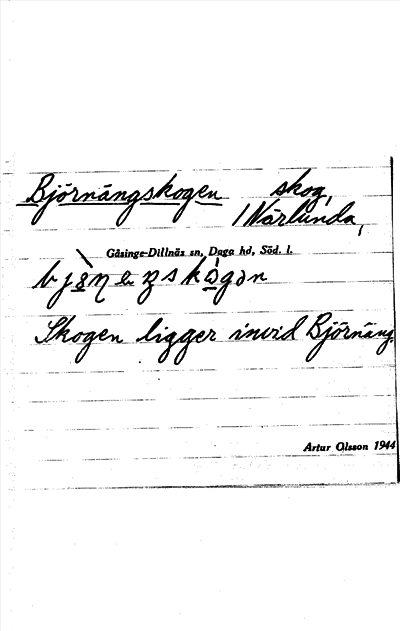 Björnängskogen skog,
/ Närlunda,
Gåsinge-Dillnäs sn, Daga hd, Söd. l.
Skogen ligger invid Björnäng.
Artur Olsson 1944